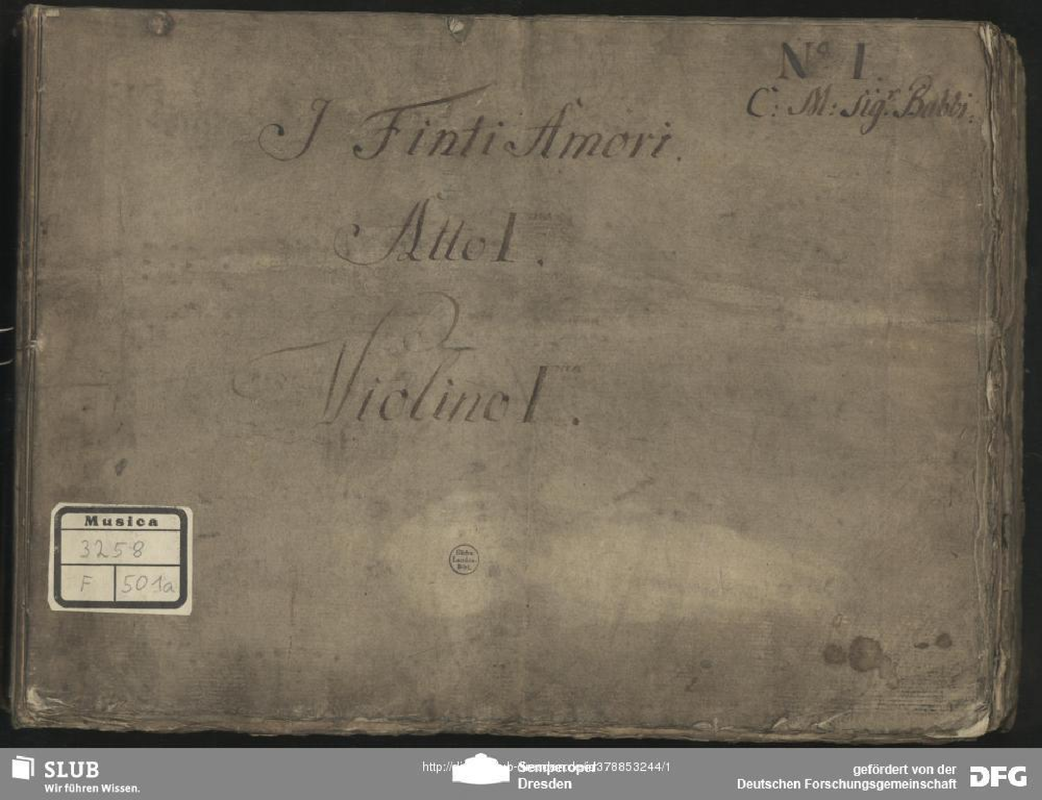 Nº 1.
C: M: Sigr. Babbi.
I Finti Amori.
Atto Imo.
Violino Imo.
Musica
3258
F 501a
Sächs.
Landes-
Bibl.
SLUB
Wir führen Wissen.
Semperoper
Dresden
gefördert von der
Deutschen Forschungsgemeinschaft
DFG